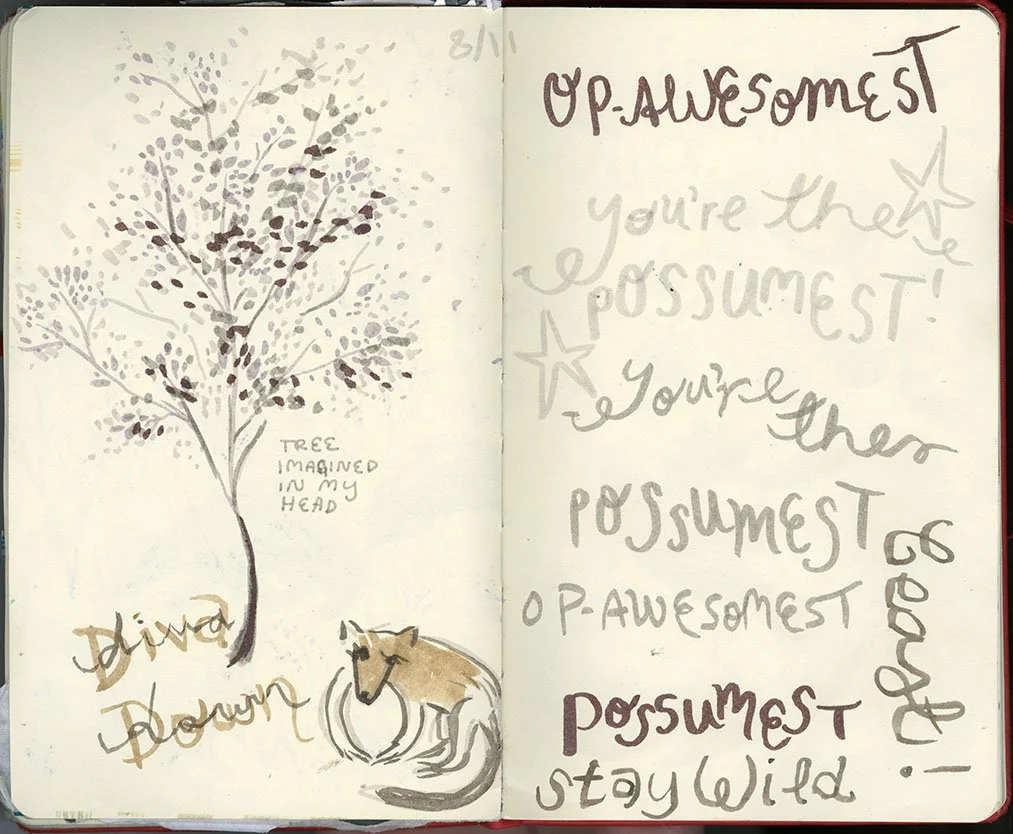 8/11
TREE
IMAGINED
IN MY
HEAD
Diva
Down
OP-AWESOMEST
you're the
POSSUMEST!
You're the
POSSUMEST
OP-AWESOMEST
beast!
POSSUMEST
stay Wild